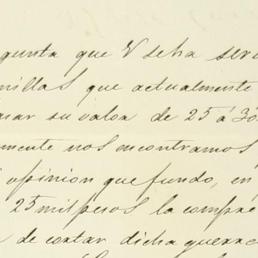 gunta que V se ha ser
millas que actualmente
nar su valor de 25 á 30
mente nos encontramos
opinion que fundo, en
25 mil pesos la compré
de cortar dicha guerra